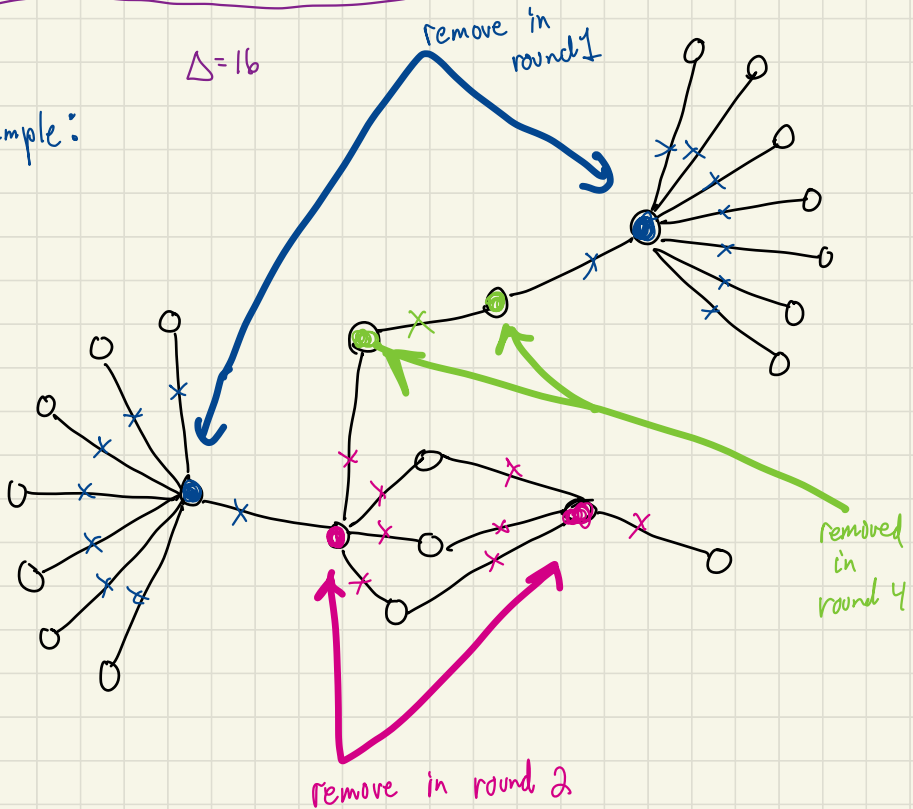 remove in
round 1
Δ=16
mple:
removed
in
round 4
remove in round 2